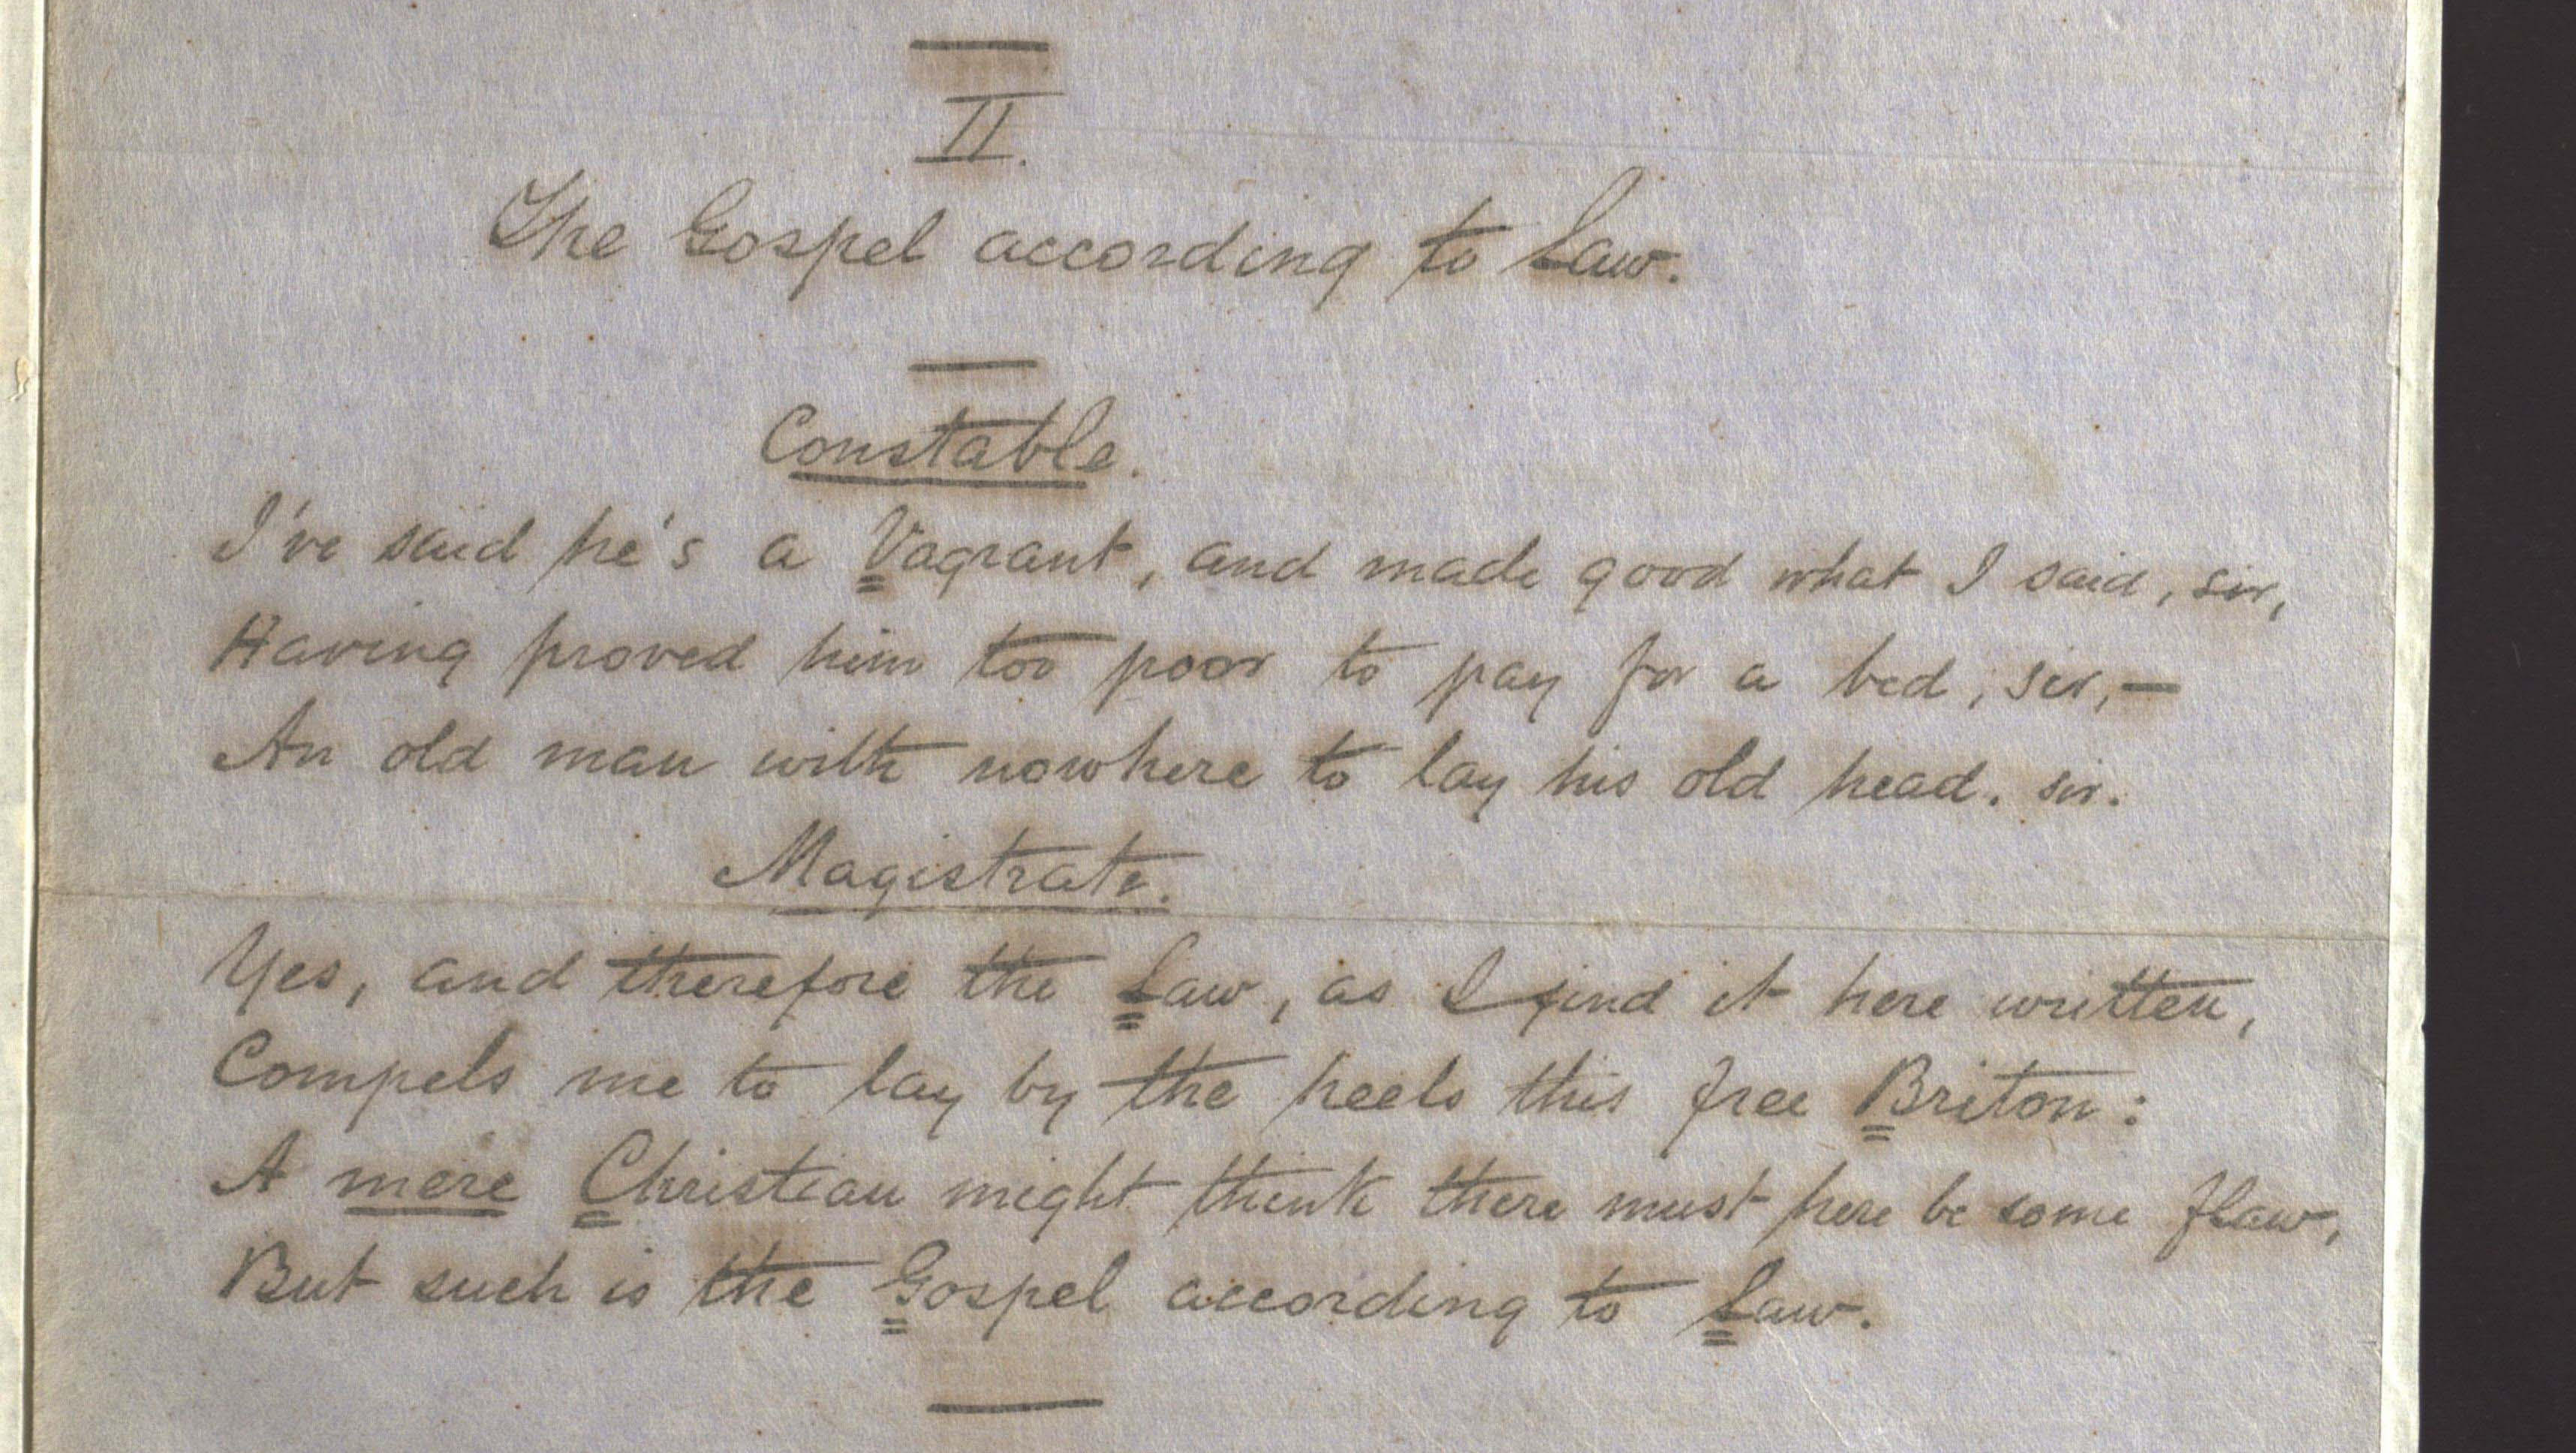 II.
The Gospel according to Law.
Constable.
I've said he's a Vagrant, and made good what I said, sir,
Having proved him too poor to pay for a bed, sir,—
An old man with nowhere to lay his old head, sir.
Magistrate.
Yes, and therefore the Law, as I find it here written,
Compels me to lay by the heels this free Briton:
A mere Christian might think there must here be some flaw,
But such is the Gospel according to Law.